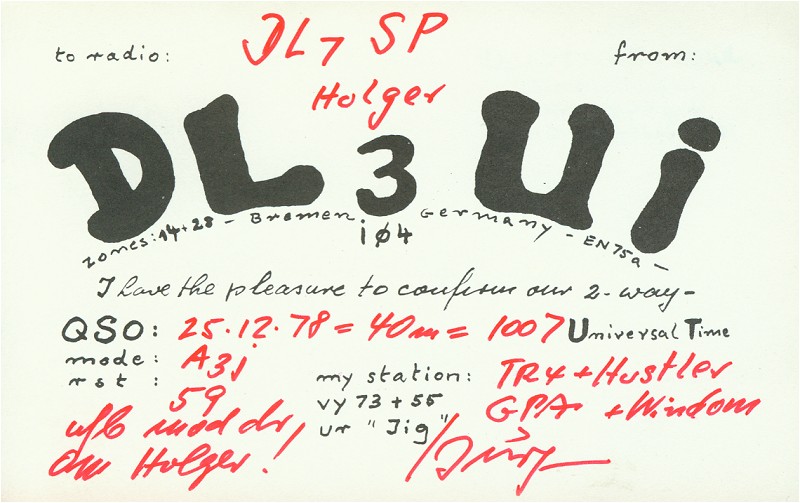 to radio: DL7 SP from:
Holger
DL3Ui
zones: 14+28 - Bremen iø4 Germany - EN75a -
I have the pleasure to confirm our 2-way-
QSO: 25.12.78 = 40m = 1007 Universal Time
mode: A3j
rst: 59
my station: TR4 + Hustler
GPA + Windom
vy 73 + 55
ur "Jig"
ufb mod dr
om Holger!
Jürg